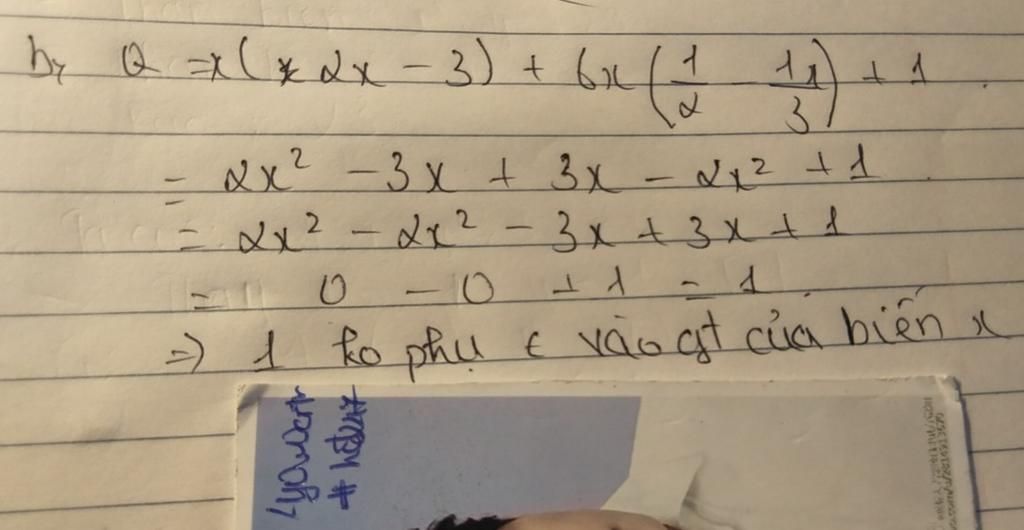 b, Q = x(2x - 3) + 6x(1/2 - 1x/3) + 1
= 2x² - 3x + 3x - 2x² + 1
= 2x² - 2x² - 3x + 3x + 1
= 0 - 0 + 1 = 1
=> 1 ko phụ € vào gt của biến x